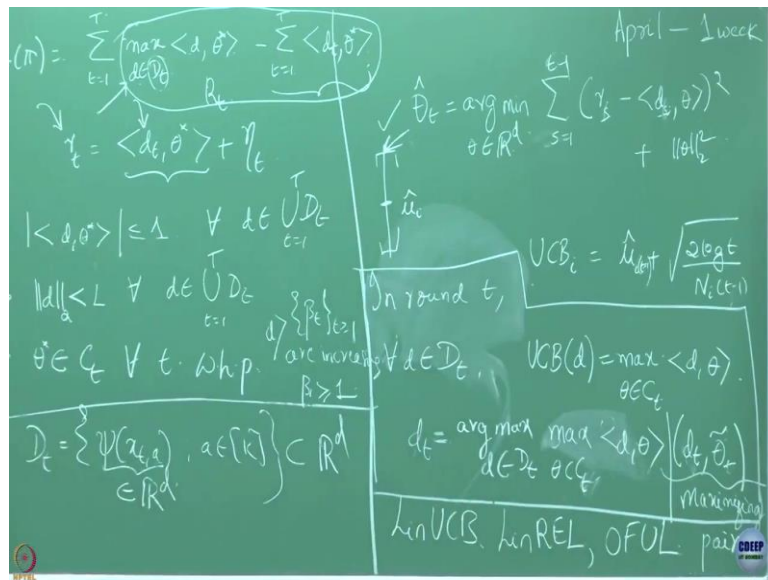 (π) = Σ_{t=1}^{T} max_{d∈D_t} <d, θ*> - Σ_{t=1}^{T} <d_t, θ*>
β_t
r_t = <d_t, θ*> + η_t
|<d, θ*>| ≤ 1 ∀ d∈ ∪_{t=1}^{T} D_t
||d||_2 < L ∀ d∈ ∪_{t=1}^{T} D_t
θ* ∈ C_t ∀ t. w.h.p.
d> {β_t}_{t≥1}
are increas
β_1 ≥ 1
D_t = {ψ(x_t,a), a∈[K]} ⊂ ℝ^d
∈ℝ^d
April - 1 week
θ̂_t = arg min_{θ∈ℝ^d} Σ_{s=1}^{t-1} (r_s - <d_s, θ>)²
+ ||θ||_2^2
û_i
UCB_i = û + √(2 log t / N_i(t-1))
In round t,
∀ d∈D_t, UCB(d) = max_{θ∈C_t} <d, θ>.
d_t = arg max_{d∈D_t} max_{θ∈C_t} <d, θ> (d_t, θ̃_t)
maximizing
LinUCB. LinREL, OFUL. pair
NPTEL
CDEEP
IIT BOMBAY